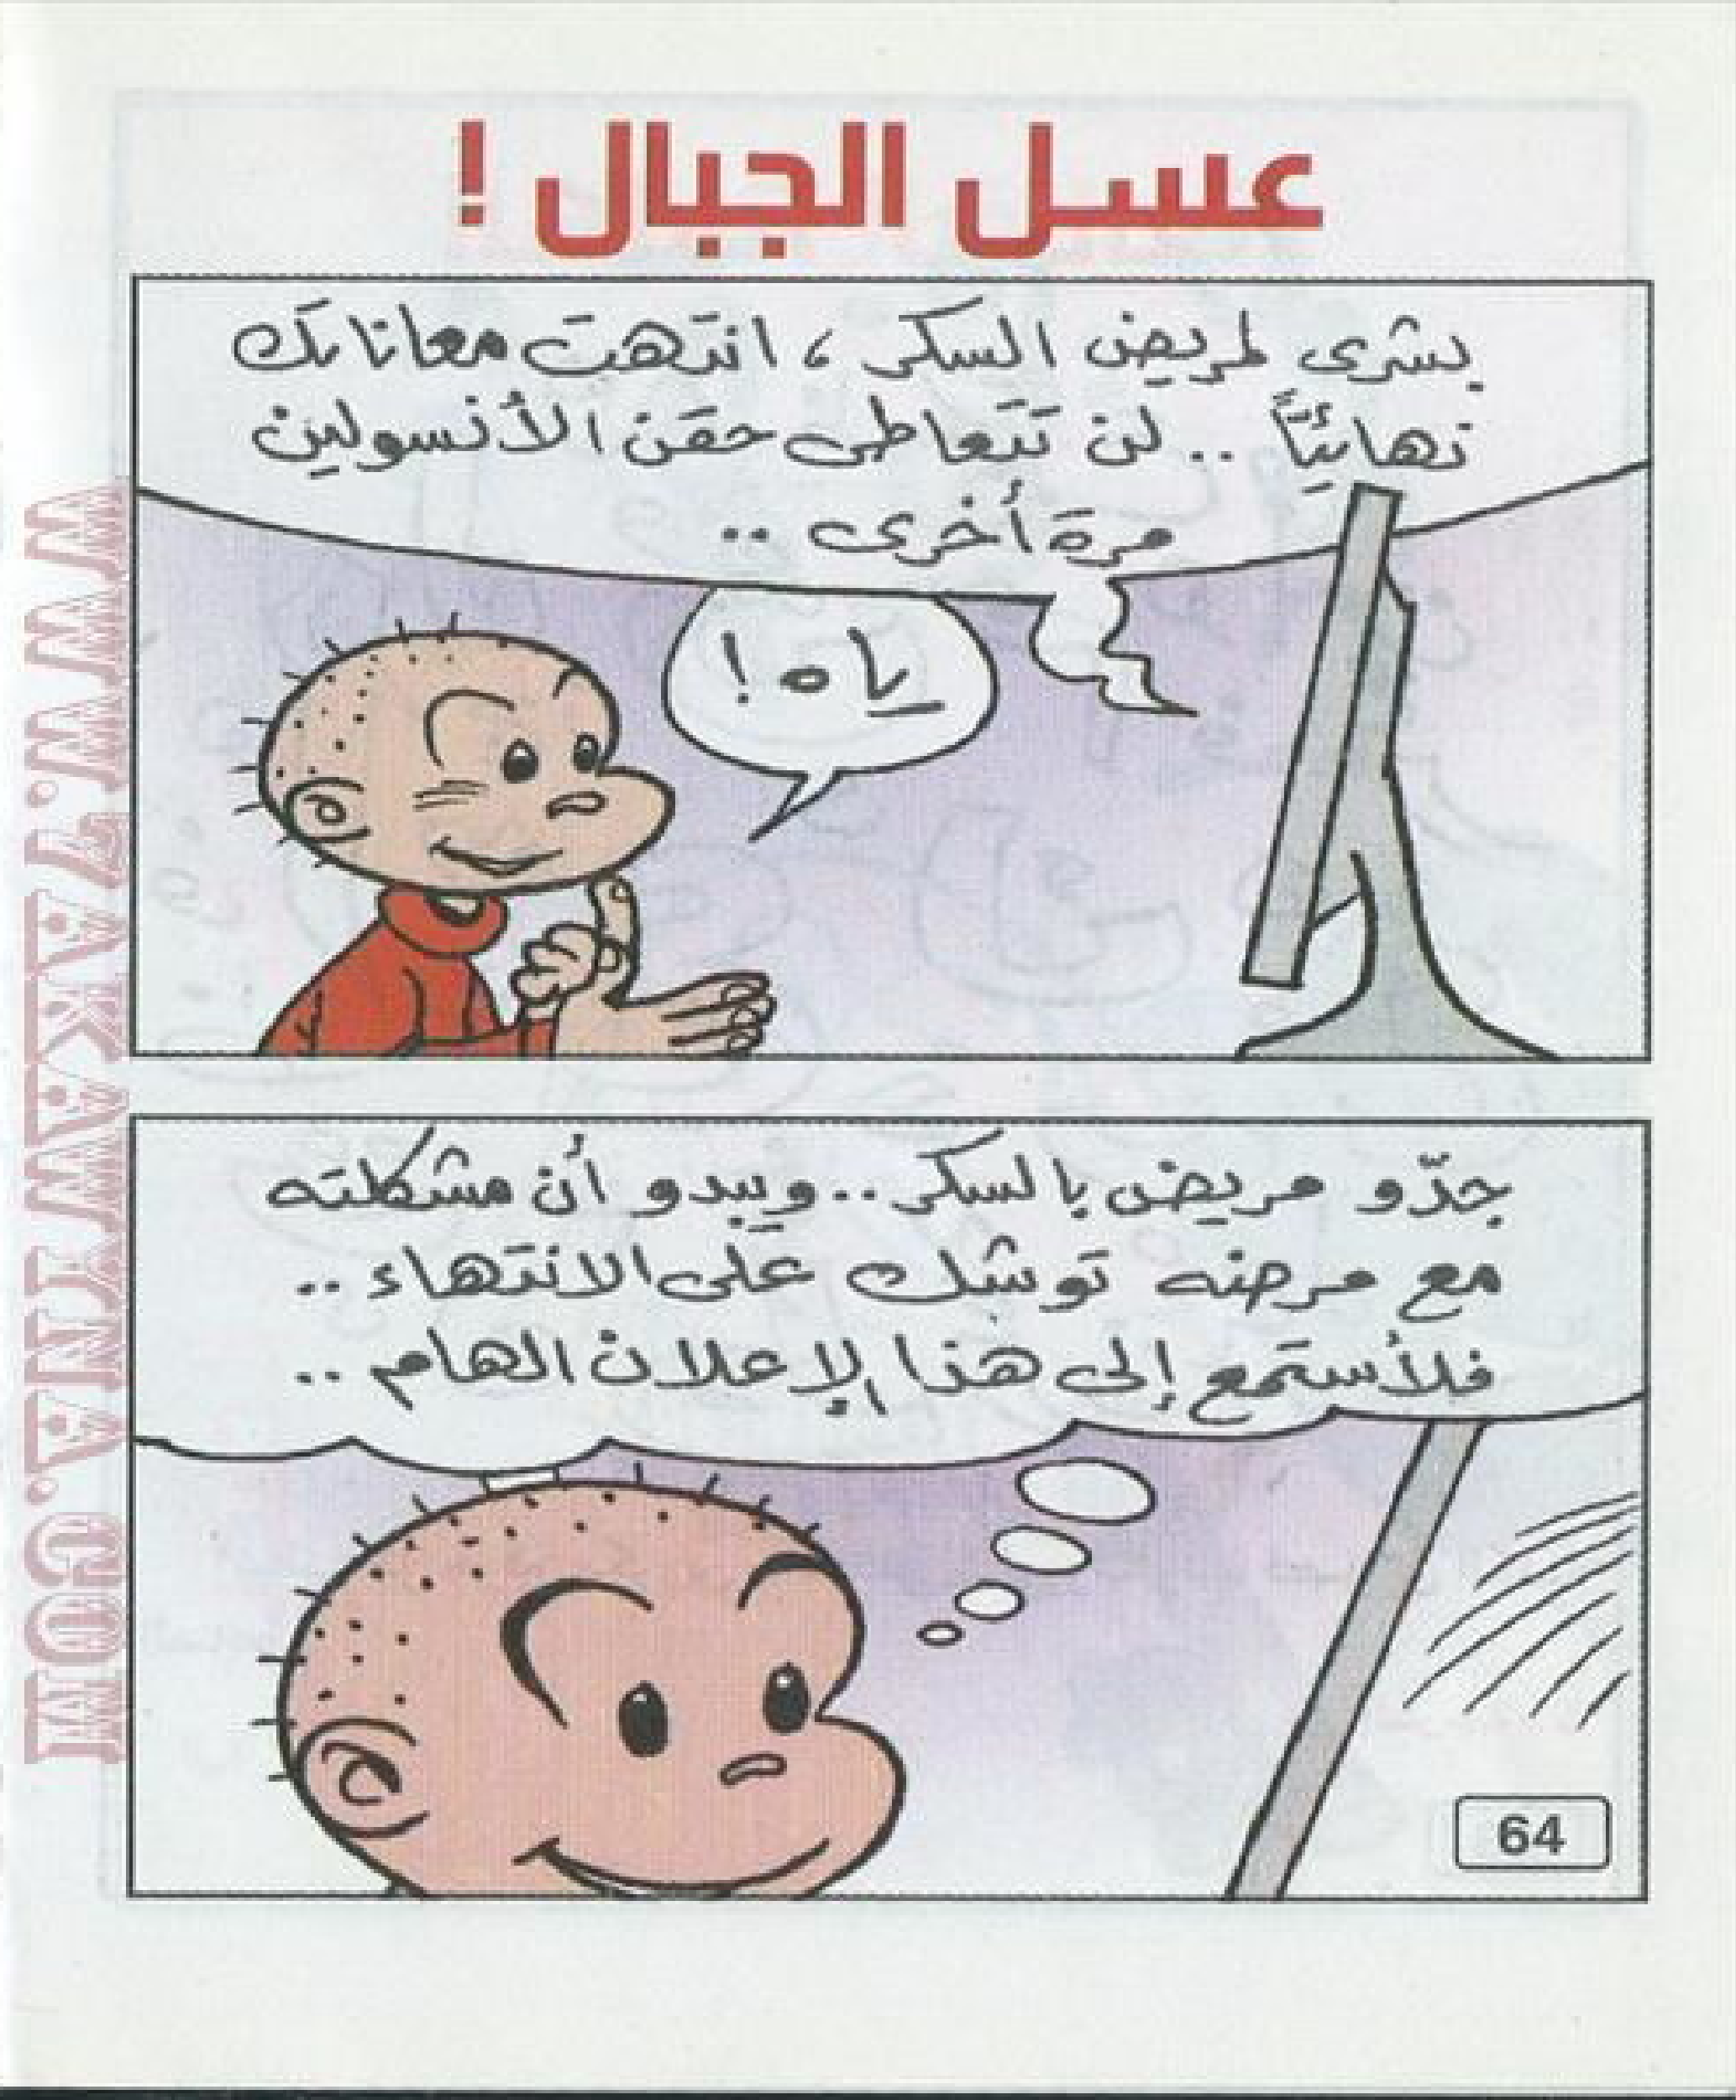 عسل الجبال !
بشرى لمريض السكر ، انتهت معاناتك
نهائيًّا .. لن تتعاطى حقن الأنسولين
مرة أخرى ..
ياه !
جدّو مريض بالسكر .. ويبدو أن مشكلته
مع مرضه توشك على الانتهاء ..
فلأستمع إلى هذا الإعلان الهام ..
64
WWW.7AKAWYNA.COM